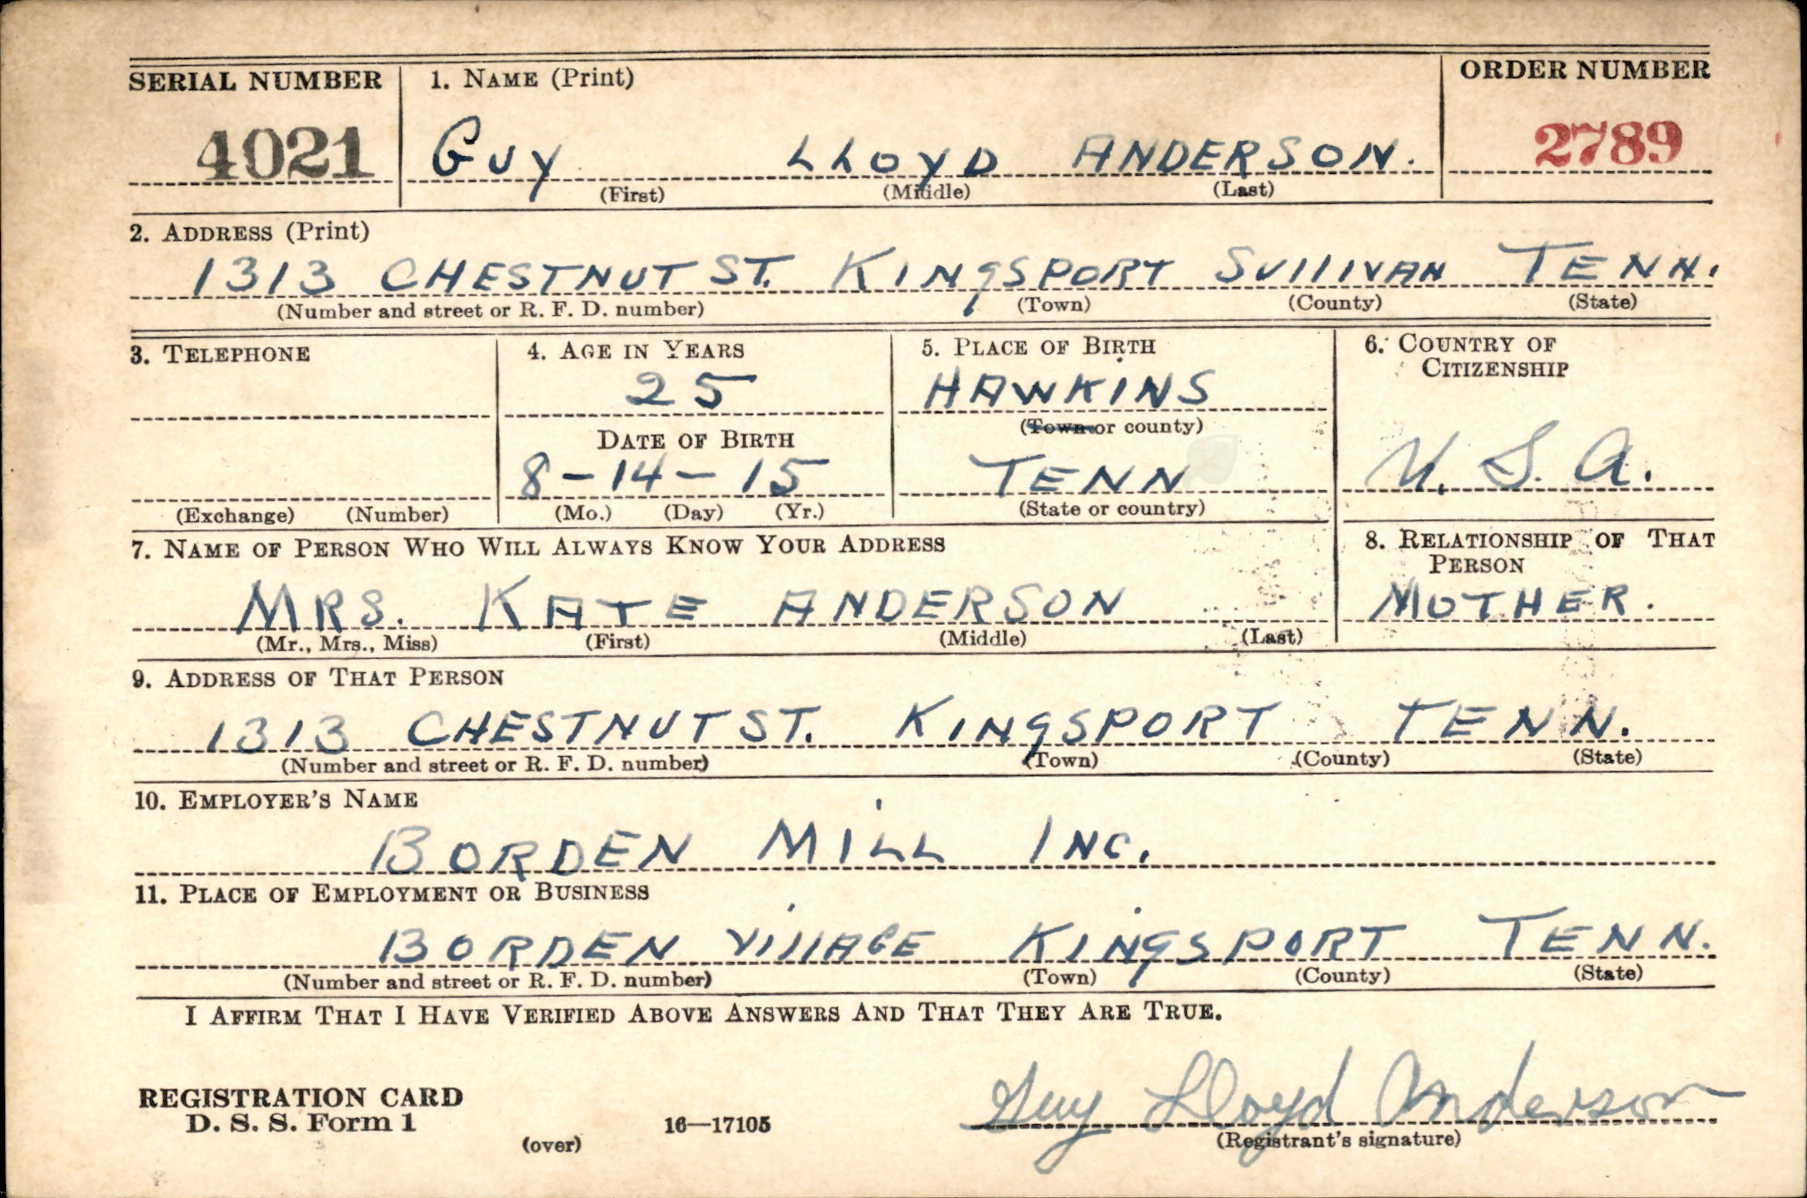 SERIAL NUMBER 1. NAME (Print) ORDER NUMBER
4021 GUY LLOYD ANDERSON. 2789
(First) (Middle) (Last)
2. ADDRESS (Print)
1313 CHESTNUT ST. KINGSPORT SULLIVAN TENN.
(Number and street or R. F. D. number) (Town) (County) (State)
3. TELEPHONE 4. AGE IN YEARS 5. PLACE OF BIRTH 6. COUNTRY OF
CITIZENSHIP
25 HAWKINS
(Town or county)
DATE OF BIRTH
8-14-15 TENN U. S. A.
(Exchange) (Number) (Mo.) (Day) (Yr.) (State or country)
7. NAME OF PERSON WHO WILL ALWAYS KNOW YOUR ADDRESS 8. RELATIONSHIP OF THAT
PERSON
MRS. KATE ANDERSON MOTHER.
(Mr., Mrs., Miss) (First) (Middle) (Last)
9. ADDRESS OF THAT PERSON
1313 CHESTNUT ST. KINGSPORT TENN.
(Number and street or R. F. D. number) (Town) (County) (State)
10. EMPLOYER'S NAME
BORDEN MILL INC.
11. PLACE OF EMPLOYMENT OR BUSINESS
BORDEN VILLAGE KINGSPORT TENN.
(Number and street or R. F. D. number) (Town) (County) (State)
I AFFIRM THAT I HAVE VERIFIED ABOVE ANSWERS AND THAT THEY ARE TRUE.
REGISTRATION CARD
D. S. S. Form 1 16—17105 Guy Lloyd Anderson
(over) (Registrant's signature)